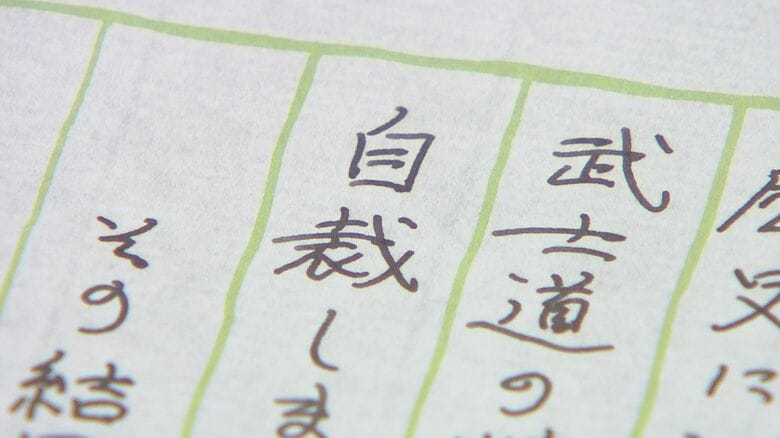 史に
武士道の
自裁しま
その結